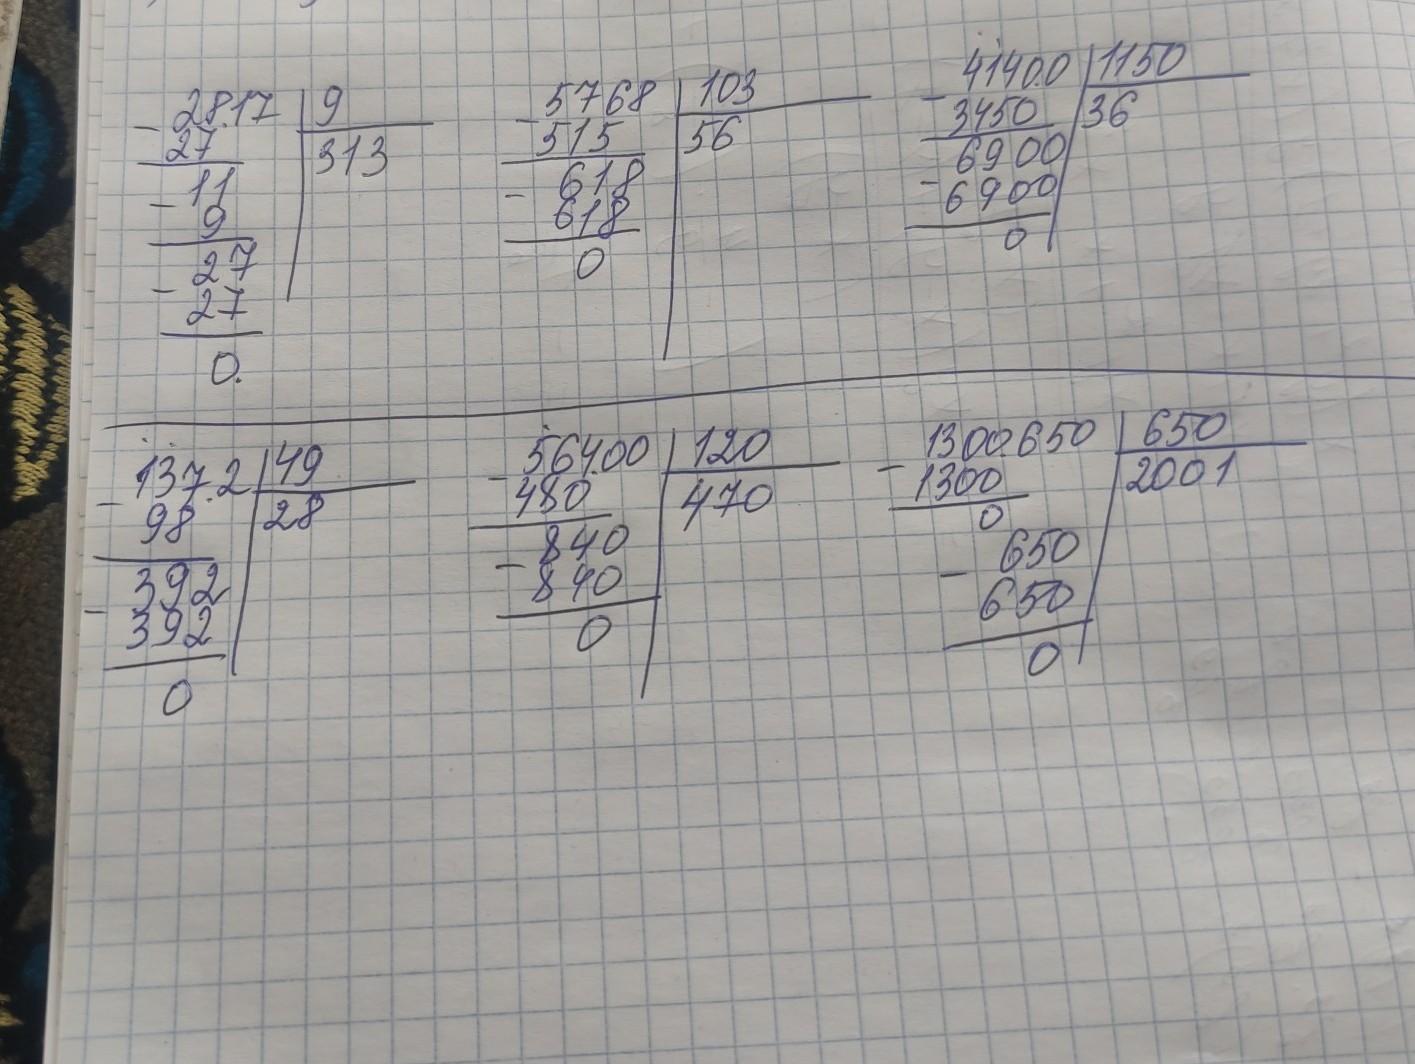 2817 9
- 27 313
11
- 9
27
- 27
0.
5768 103
- 515 56
618
- 618
0
41400 1150
- 3450 36
6900
- 6900
0
1372 49
- 98 28
392
- 392
0
56400 120
- 480 470
840
- 840
0
1300650 650
- 1300 2001
0
650
- 650
0